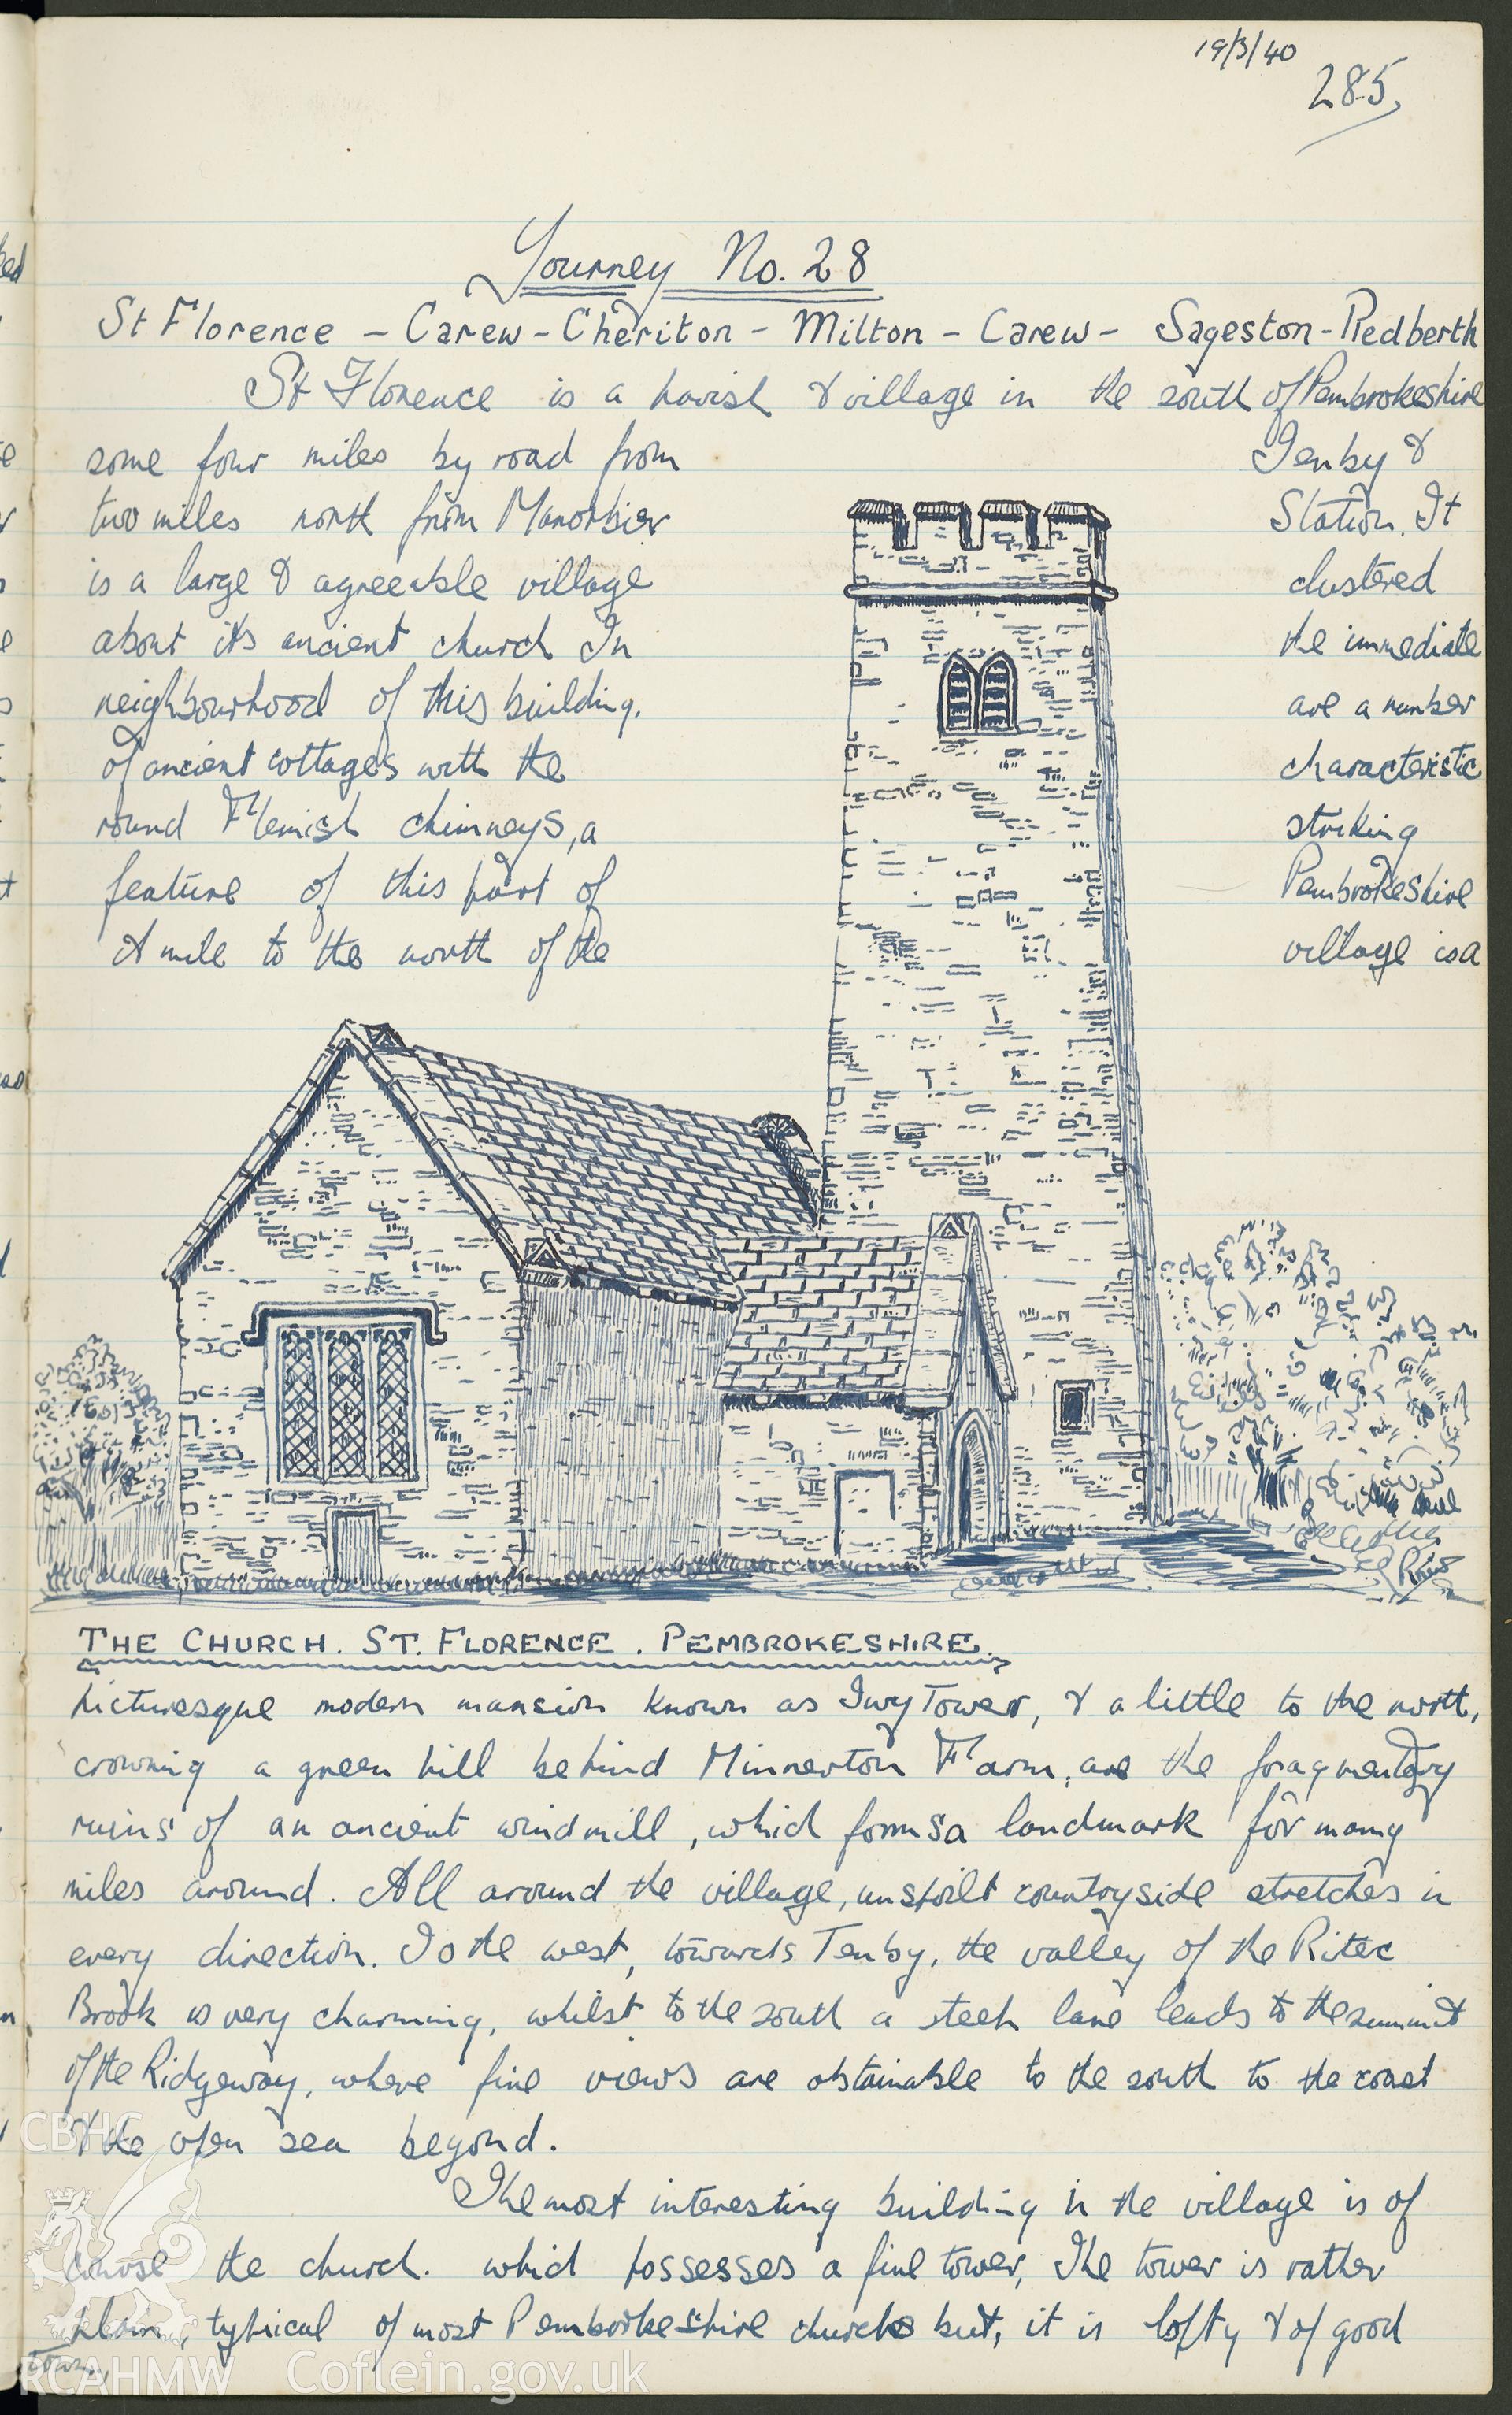 19/3/40
285,
Journey No. 28
St Florence – Carew – Cheriton – Milton – Carew – Sageston – Redberth
St Florence is a parish & village in the south of Pembrokeshire
some four miles by road from Tenby &
two miles north from Manorbier Station. It
is a large & agreeable village clustered
about its ancient church In the immediate
neighbourhood of this building, are a number
of ancient cottages with the characteristic
round Flemish chimneys, a striking
feature of this part of Pembrokeshire
A mile to the north of the village is a
THE CHURCH. ST. FLORENCE. PEMBROKESHIRE.
picturesque modern mansion known as Ivy Tower, & a little to the north,
crowning a green hill behind Minnerton Farm, are the fragmentary
ruins of an ancient windmill, which forms a landmark for many
miles around. All around the village, unspoilt countryside stretches in
every direction. To the west, towards Tenby, the valley of the Ritec
Brook is very charming, whilst to the south a steep lane leads to the summit
of the Ridgeway, where fine views are obtainable to the south to the coast
& the open sea beyond.
The most interesting building in the village is of
course the church. which possesses a fine tower, The tower is rather
plain, typical of most Pembrokeshire churchs but, it is lofty & of good
CBHC
RCAHMW Coflein.gov.uk